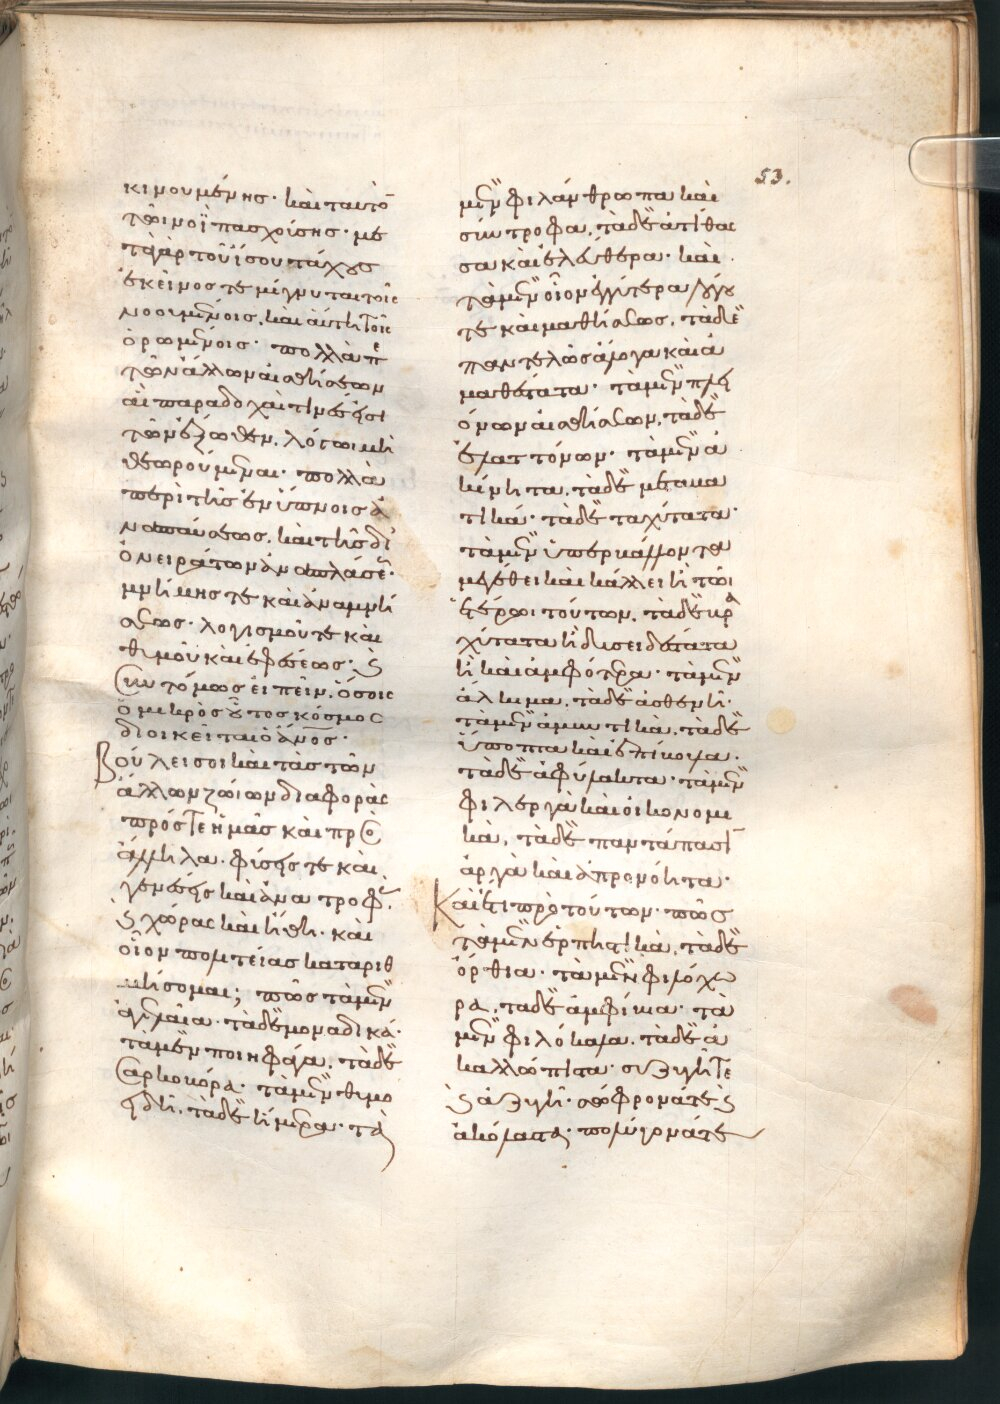 53.
κινουμένης· καὶ ταυτὸ
τῶι νοῒ πασχούσης· με
τὰ γὰρ τοῦ ἴσου τάχους
ἐκεῖνος τε μίγνυται τοῖς
νοουμένοις, καὶ αὕτη τοῖς
ὁρωμένοις· πολλὰ π
τῶν ἄλλων αἰσθήσεων
αἳ παραδοχαὶ τινές εἰσι
τῶν ἔξωθεν, λόγωι μὴ
θεωρούμεναι· πολλὰ
περὶ τῆς ἐν ὕπνοις ἀ
ναπαύσεως, καὶ τῆς δι
ὀνειράτων ἀναπλάσε·
μνήμης τε καὶ ἀναμνή
σεως· λογισμοῦ τε καὶ
θυμοῦ καὶ ἐφέσεως· ϗ
συντόμως εἰπεῖν, ὅσοις
ὁ μικρὸς οὗτος κόσμος
διοικεῖται ὁ ἄνος·
Βούλει σοι καὶ τὰς τῶν
ἄλλων ζώιων διαφορὰς
πρός τε ἡμᾶς καὶ πρὸ
ἄλληλα· φύσεις τε καὶ
γενέσεις καὶ ἀνατροφ·
ϗ χώρας καὶ ἤθη· καὶ
οἷον πολιτείας καταριθ
μήσομαι; πῶς τὰ μὲν
ἀγελαῖα· τὰ δὲ μοναδικά·
τὰ μὲν ποηφάγα, τὰ δὲ
σαρκοβόρα· τὰ μὲν θυμο
ειδῆ, τὰ δὲ ἥμερα· τὰ
μὲν φιλάνθρωπα καὶ
σύντροφα, τὰ δὲ ἀτίθασ
σα καὶ ἐλεύθερα· καὶ
τὰ μὲν οἷον ἐγγύτερα λόγου
τε καὶ μαθήσεως, τὰ δὲ
παντελῶς ἄλογα καὶ ἀ
μαθέστατα· τὰ μὲν πλει
όνων αἰσθήσεων, τὰ δὲ
ἐλαττόνων· τὰ μὲν ἀ
κίνητα, τὰ δὲ μεταβα
τικά· τὰ δὲ ταχύτατα·
τὰ μὲν ὑπερβάλλοντα
μεγέθει καὶ κάλλει ἢ τῶι
ἑτέρωι τούτων, τὰ δὲ βρα
χύτατα ἢ δυσειδέστατα
ἢ καὶ ἀμφότερα· τὰ μὲν
ἄλκιμα, τὰ δὲ ἀσθενῆ·
τὰ μὲν ἀμυντικὰ, τὰ δὲ
ὕποπτα καὶ ἐπίβουλα·
τὰ δὲ ἀφύλακτα· τὰ μὲν
φιλεργὰ καὶ οἰκονομι
κὰ, τὰ δὲ παντάπασι
ἀργὰ καὶ ἀπρονόητα·
Καὶ ἔτι πρὸ τούτων· πῶς
τὰ μὲν ἑρπηστικὰ, τὰ δὲ
ὄρθια· τὰ μὲν φιλόχω
ρα, τὰ δὲ ἀμφίβια· τὰ
μὲν φιλόκαλα, τὰ δὲ ἀ
καλλώπιστα· συζυγῆ τε
ϗ ἀζυγῆ· σώφρονά τε ϗ
ἀκόλαστα· πολύγονά τε